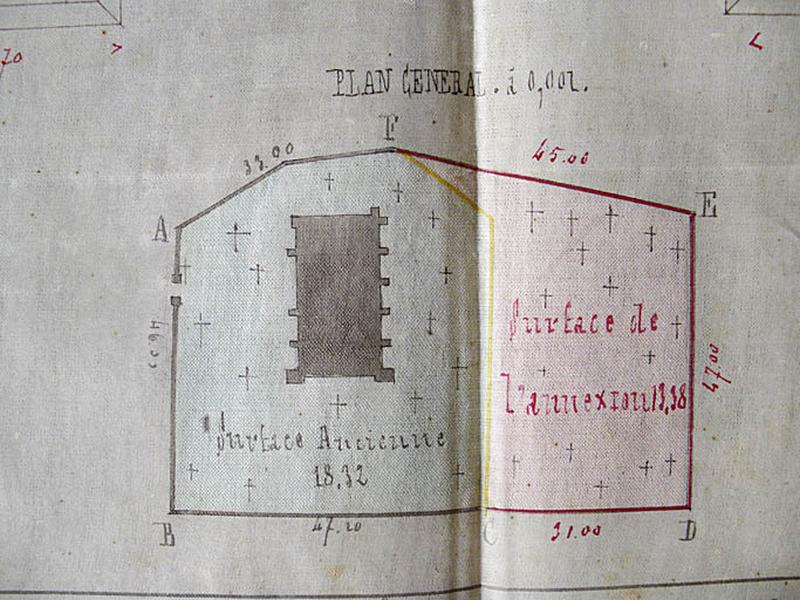 70
PLAN GENERAL. à 0,001.
F
33.00
45.00
A
E
46.00
Surface de
l'annexion 13,38
47.00
Surface Ancienne
18.32
B
47.20
C
31.00
D